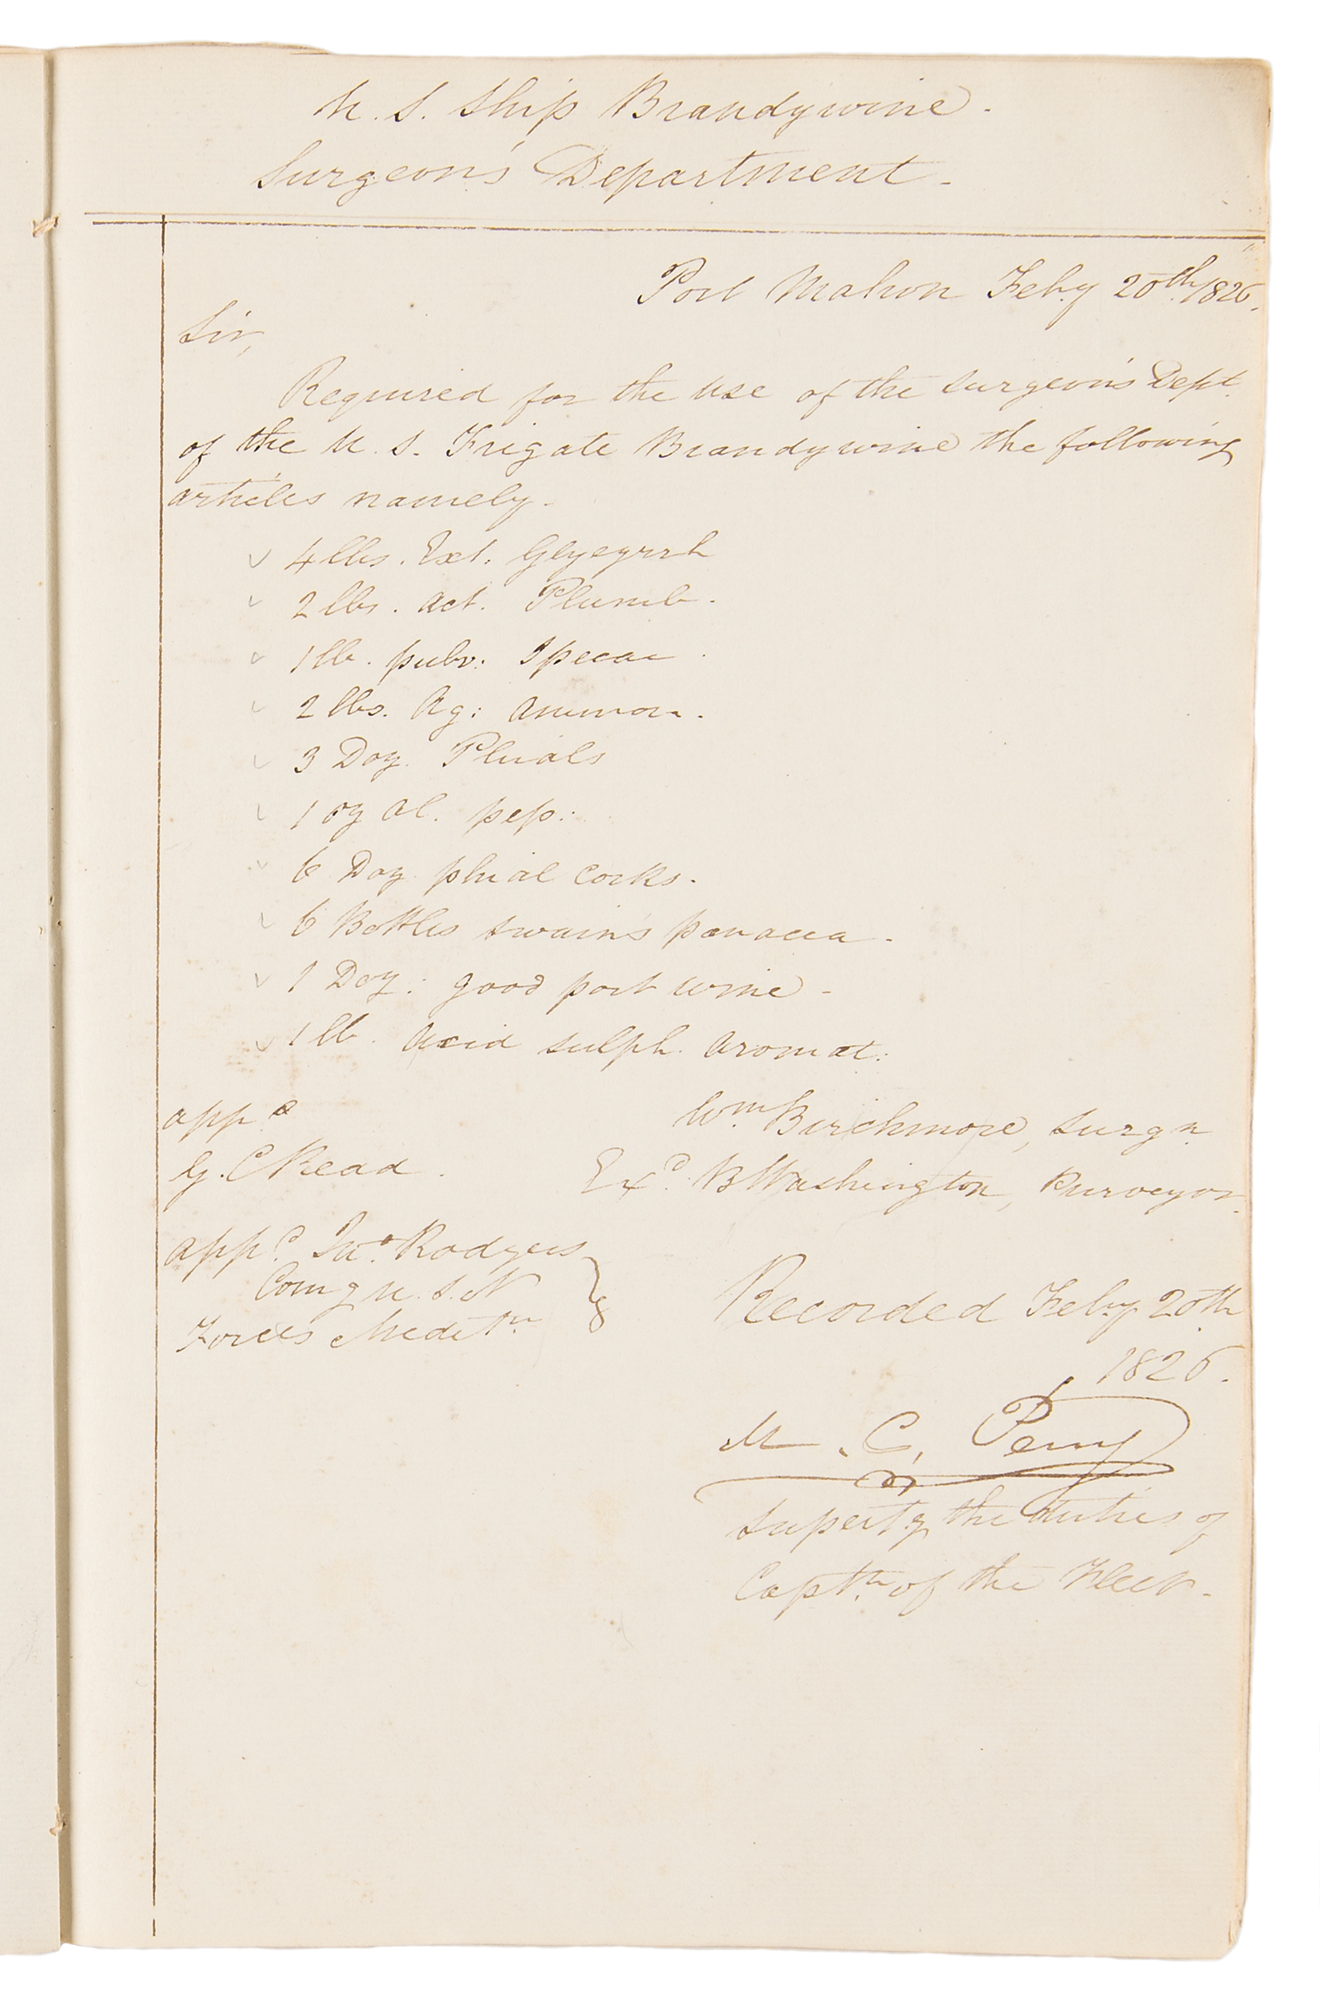 U. S. Ship Brandywine.
Surgeon's Department.
Port Mahon Feby 20th 1826.
Sir,
Required for the use of the surgeon's Dept.
of the U. S. Frigate Brandywine the following
articles namely.
4 lbs. Ext. Glycyrrh
2 lbs. Act. Plumb.
1 lb. pulv. Ipecac.
2 lbs. Aq: Ammon.
3 Doz. Phials
1 oz Ol. pep:
6 Doz phial corks.
6 Bottles swaim's panacea.
1 Doz: good port wine.
1 lb. Acid sulph. aromat:
Wm Birchmore, surgn
appd
G. C Read.
Exd. B Washington, Purveyor.
appd. Jno. Rodgers
Comg U. S. N
Forces Meditn
Recorded Feby 20th
1826.
M. C. Perry
the duties of
Captn. of the Fleet.